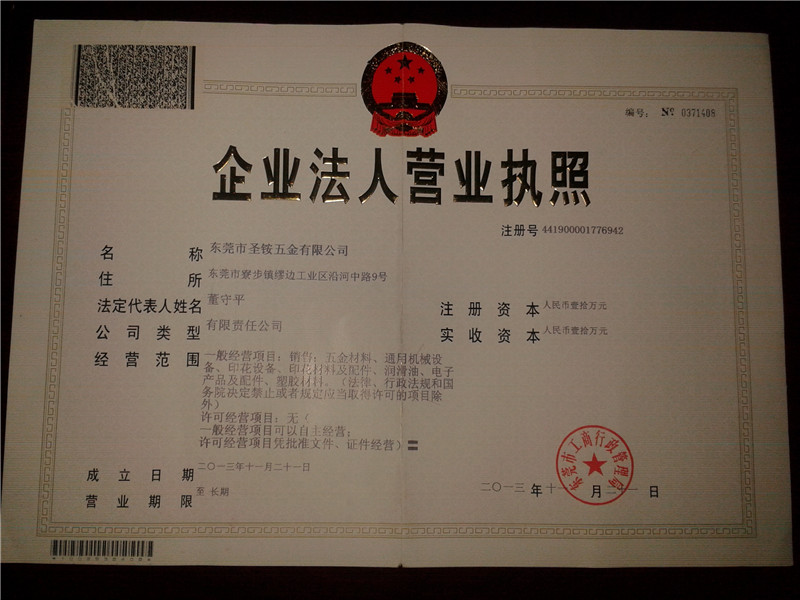 编号: № 0371408
企业法人营业执照
注册号 441900001776942
名称 东莞市圣铵五金有限公司
住所 东莞市寮步镇缪边工业区沿河中路9号
法定代表人姓名 董守平
注册资本 人民币壹拾万元
公司类型 有限责任公司
实收资本 人民币壹拾万元
经营范围 一般经营项目:销售:五金材料、通用机械设
备、印花设备、印花材料及配件、润滑油、电子
产品及配件、塑胶材料。(法律、行政法规和国
务院决定禁止或者规定应当取得许可的项目除
外)
许可经营项目:无(
一般经营项目可以自主经营;
许可经营项目凭批准文件、证件经营)
成立日期 二〇一三年十一月二十一日
营业期限 至 长期
东莞市工商行政管理局
二〇一三 年 十一 月 二十一 日